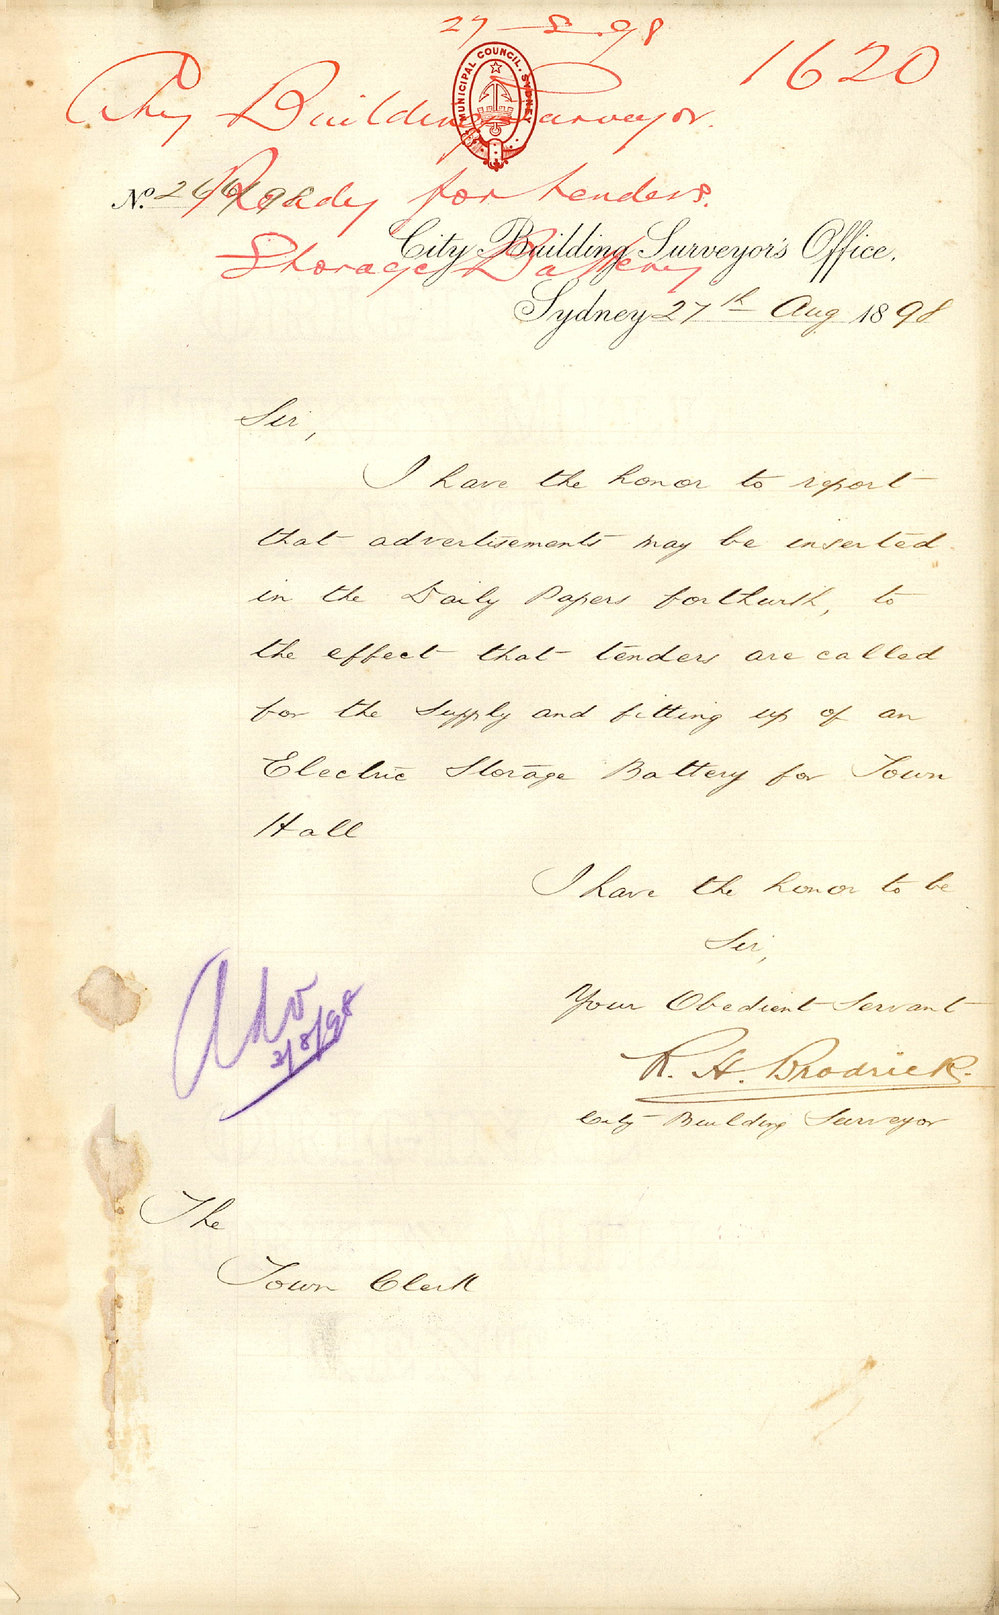 27-8-98
1620
MUNICIPAL COUNCIL. SYDNEY
City Building Surveyor.
Ready for tenders.
Storage Battery
No.
City Building Surveyor's Office.
Sydney 27th Aug 1898
Sir,
I have the honor to report
that advertisements may be inserted
in the Daily Papers forthwith, to
the effect that tenders are called
for the supply and fitting up of an
Electric Storage Battery for Town
Hall
I have the honor to be
Sir,
Your Obedient Servant
R. H. Brodrick.
City Building Surveyor
The
Town Clerk